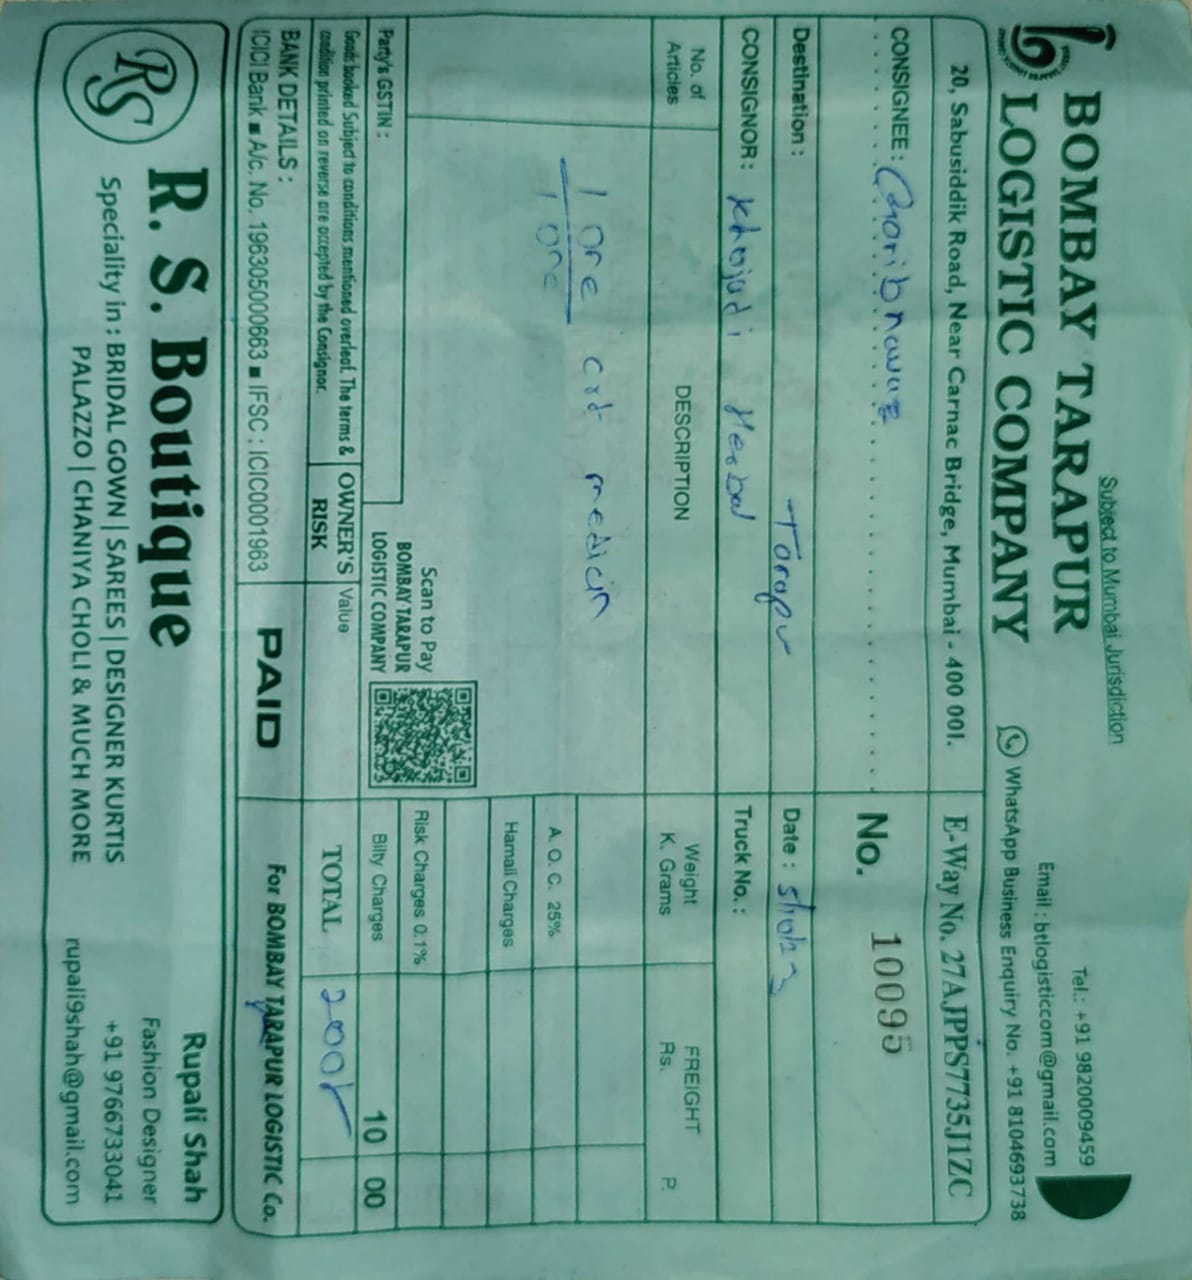 Subject to Mumbai Jurisdiction
BOMBAY TARAPUR
LOGISTIC COMPANY
Tel.: +91 9820009459
Email : btlogisticcom@gmail.com
WhatsApp Business Enquiry No. +91 8104693738
20, Sabusiddik Road, Near Carnac Bridge, Mumbai - 400 001.
E-Way No. 27AJPPS7735J1ZC
CONSIGNEE: Garib nawaz
No. 10095
Destination : Tarapur
Date :
CONSIGNOR: Herbal
Truck No. :
No. of Articles
DESCRIPTION
Weight K. Grams
FREIGHT Rs. P.
1 one cot medicin
1 one
A. O. C. 25%
Hamali Charges
Risk Charges 0.1%
Bilty Charges 10 00
TOTAL 200/-
Scan to Pay
BOMBAY TARAPUR
LOGISTIC COMPANY
Party's GSTIN :
Goods booked Subject to conditions mentioned overleaf. The terms &
condition printed on reverse are accepted by the Consignor.
OWNER'S RISK
Value
BANK DETAILS :
ICICI Bank ■ A/c. No. 196305000663 ■ IFSC : ICIC0001963
PAID
For BOMBAY TARAPUR LOGISTIC Co.
RS
R. S. Boutique
Speciality in : BRIDAL GOWN | SAREES | DESIGNER KURTIS
PALAZZO | CHANIYA CHOLI & MUCH MORE
Rupali Shah
Fashion Designer
+91 9766733041
rupali9shah@gmail.com